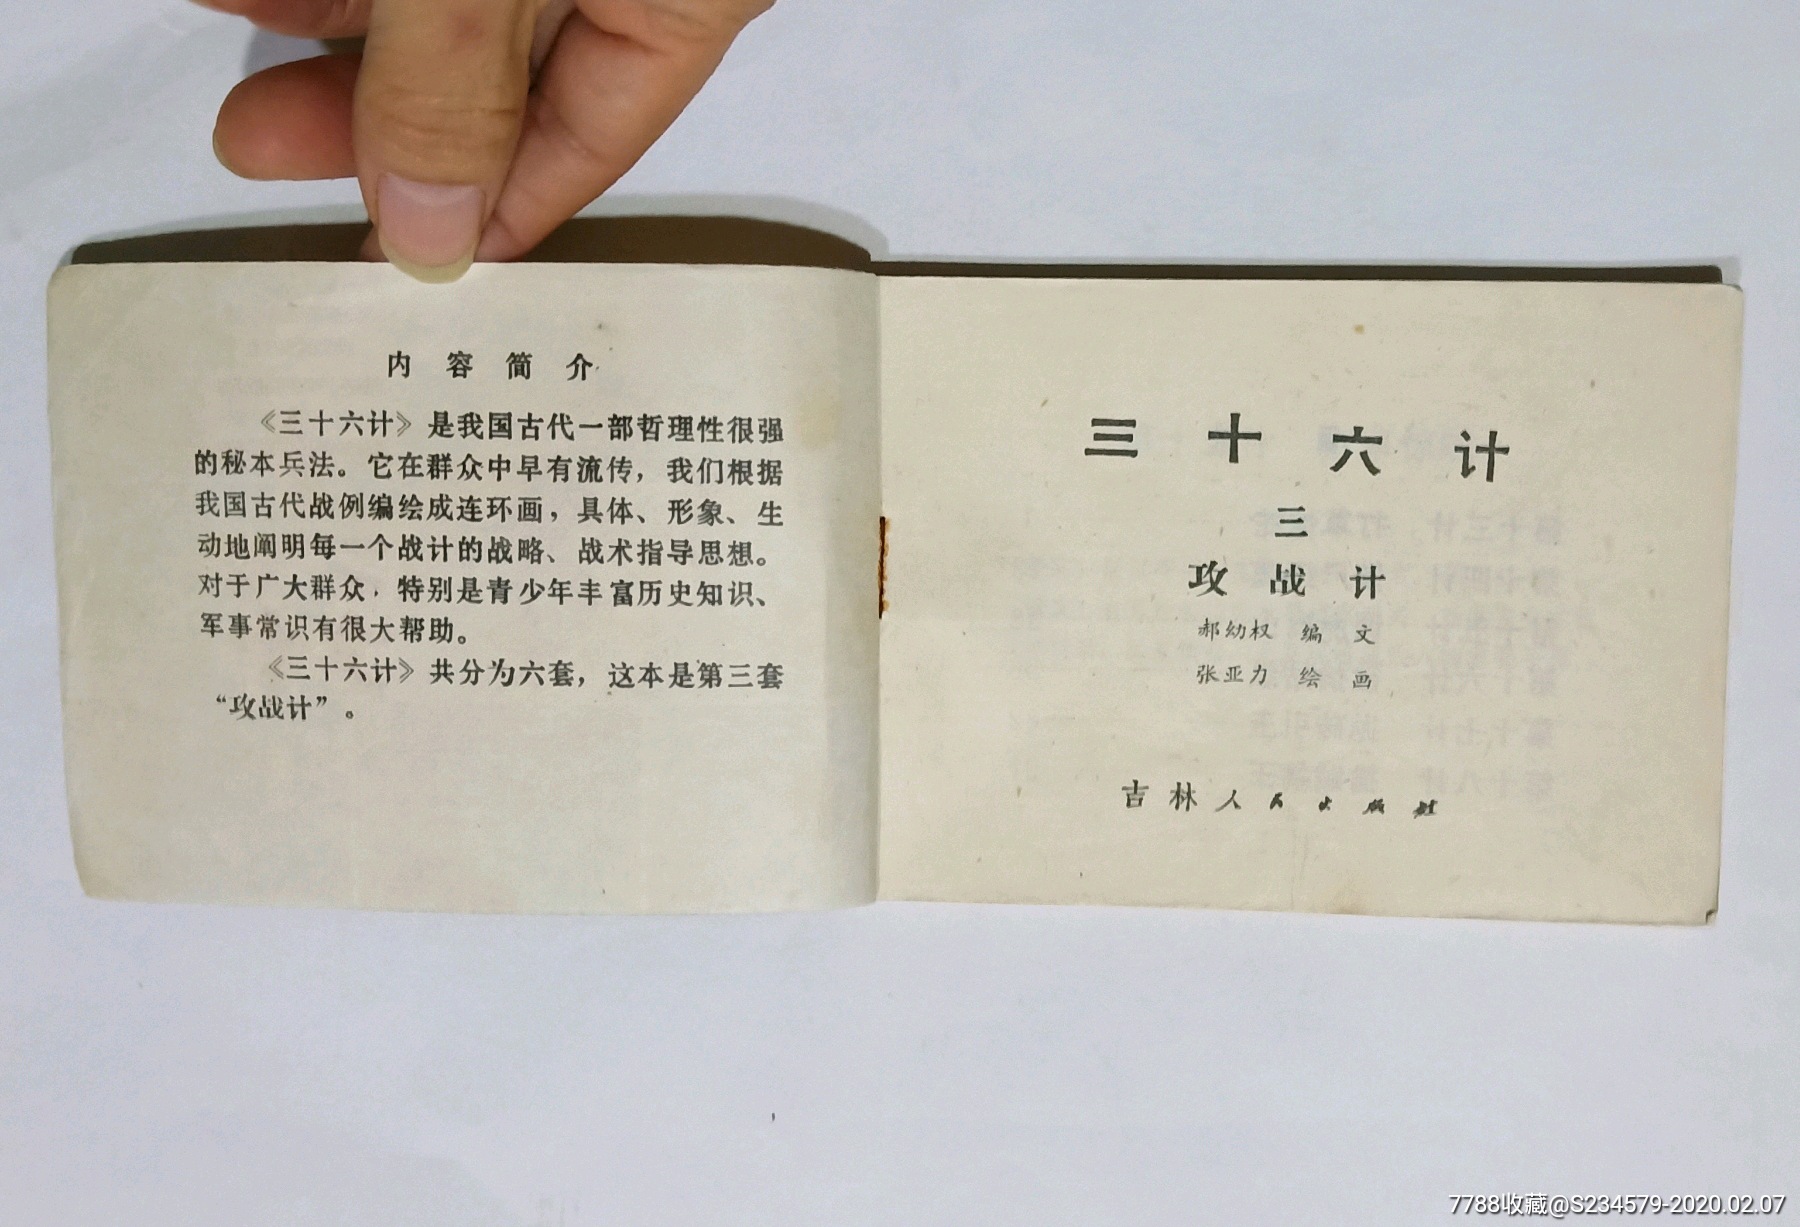 内容简介
《三十六计》是我国古代一部哲理性很强
的秘本兵法。它在群众中早有流传，我们根据
我国古代战例编绘成连环画，具体、形象、生
动地阐明每一个战计的战略、战术指导思想。
对于广大群众，特别是青少年丰富历史知识、
军事常识有很大帮助。
《三十六计》共分为六套，这本是第三套
“攻战计”。
三十六计
三
攻战计
郝幼权 编文
张亚力 绘画
吉林人民出版社
7788收藏@S234579-2020.02.07